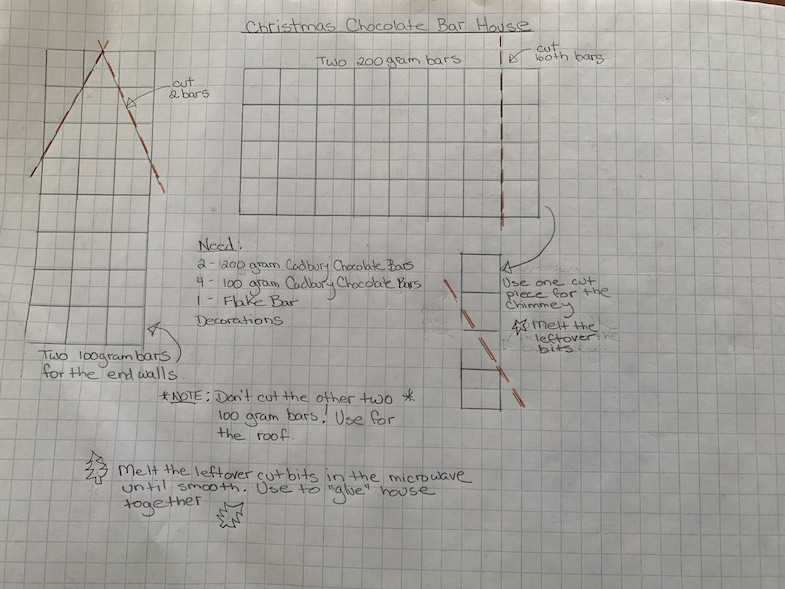 Christmas Chocolate Bar House
cut
2 bars
Two 200 gram bars
cut
both bars
Need:
2 - 200 gram Cadbury Chocolate Bars
4 - 100 gram Cadbury Chocolate Bars
1 - Flake Bar
Decorations
Use one cut
piece for the
chimney
Melt the
leftover
bits.
Two 100 gram bars
for the end walls
*NOTE: Don't cut the other two *
100 gram bars! Use for
the roof.
Melt the leftover cut bits in the microwave
until smooth. Use to "glue" house
together